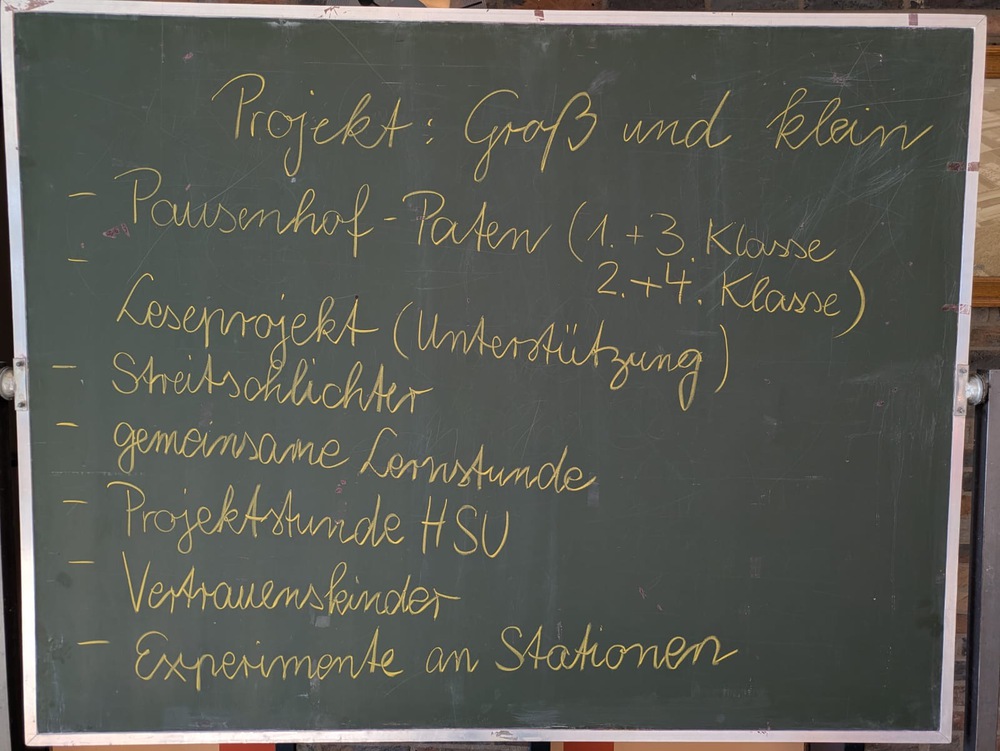 Projekt: Groß und klein
- Pausenhof-Paten (1. + 3. Klasse
2. + 4. Klasse)
- Leseprojekt (Unterstützung)
- Streitschlichter
- gemeinsame Lernstunde
- Projektstunde HSU
- Vertrauenskinder
- Experimente an Stationen